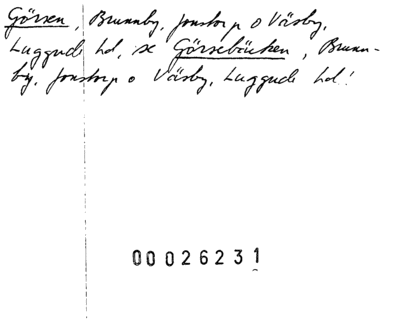 Görsen, Brunnby, Jonstorp o Väsby,
Luggude hd, se Görsebäcken, Brunn-
by, Jonstorp o Väsby, Luggude hd!
00026231